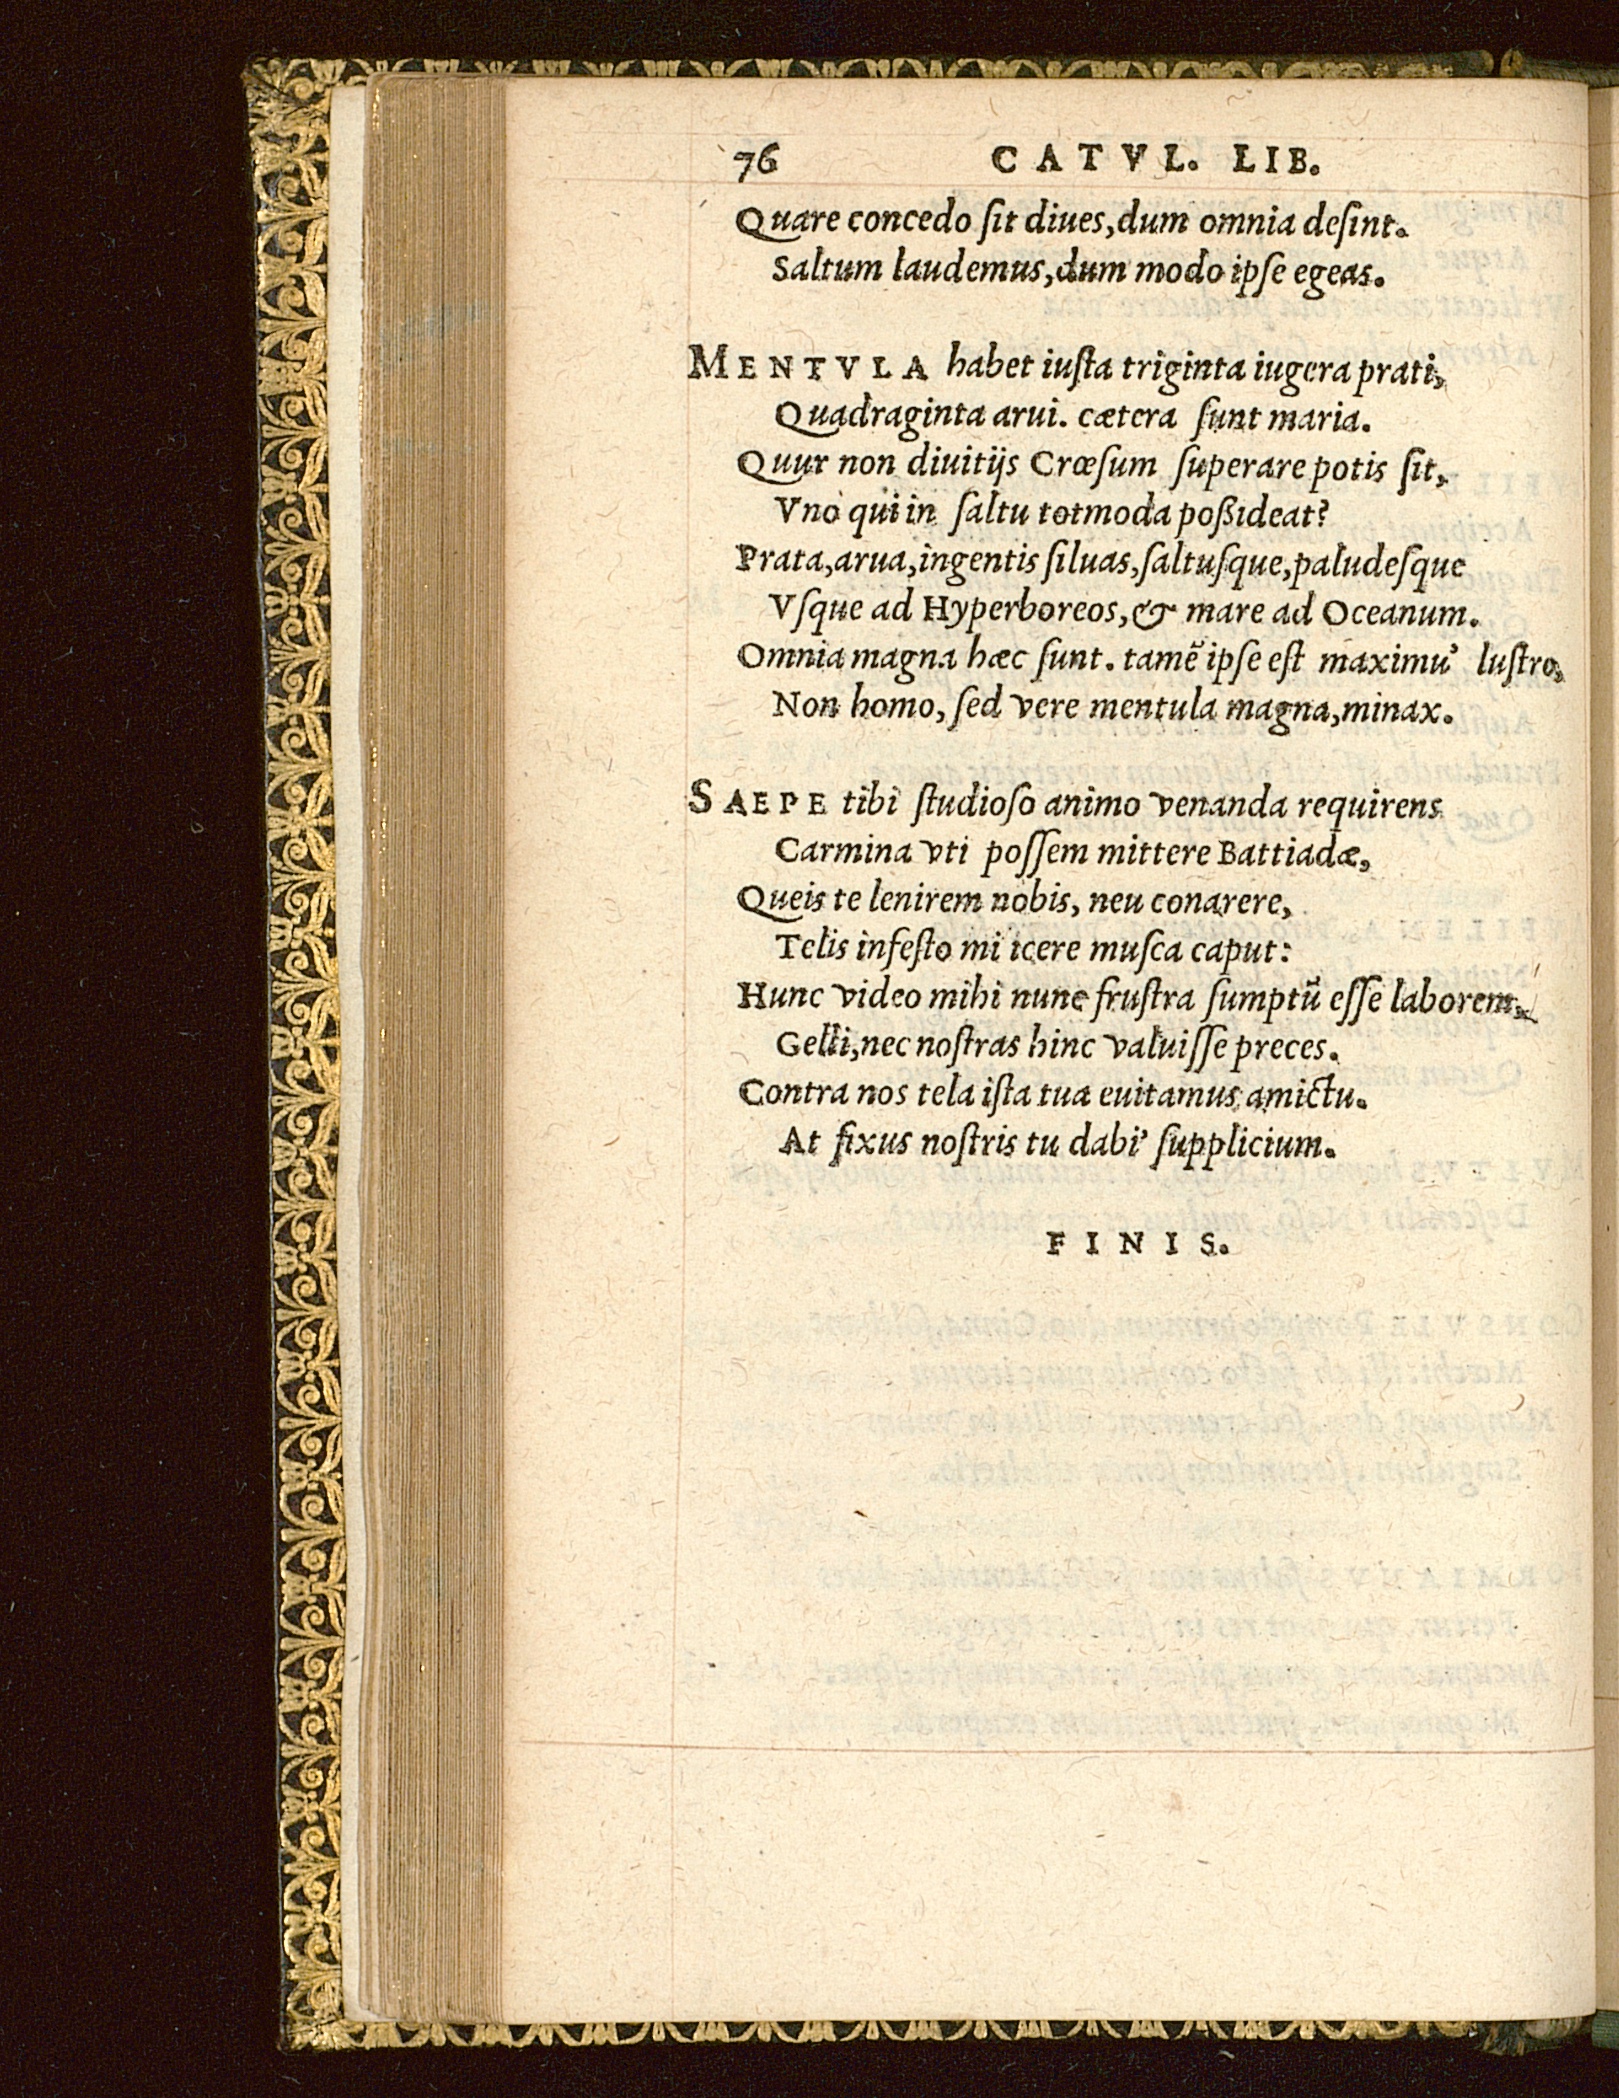 76 CATVL. LIB.
Quare concedo ſit diues, dum omnia deſint.
Saltum laudemus, dum modo ipſe egeas.
MENTVLA habet iuſta triginta iugera prati,
Quadraginta arui. cætera ſunt maria.
Quur non diuitijs Crœſum ſuperare potis ſit,
Vno qui in ſaltu totmoda poßideat?
Prata, arua, ingentis ſiluas, ſaltuſque, paludeſque
Vſque ad Hyperboreos, & mare ad Oceanum.
Omnia magna hæc ſunt. tamẽ ipſe eſt maximu' luſtro,
Non homo, ſed vere mentula magna, minax.
SAEPE tibi ſtudioſo animo venanda requirens
Carmina vti poſſem mittere Battiadæ,
Queis te lenirem nobis, neu conarere,
Telis infeſto mi icere muſca caput:
Hunc video mihi nunc fruſtra ſumptũ eſſe laborem,
Gelli, nec noſtras hinc valuiſſe preces.
Contra nos tela iſta tua euitamus amictu.
At fixus noſtris tu dabi' ſupplicium.
FINIS.